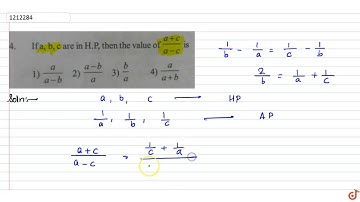 1212284
4. If a, b, c are in H.P, then the value of a+c/a-c is
1) a/a-b 2) a-b/a 3) b/a 4) a/a+b
1/b - 1/a = 1/c - 1/b
2/b = 1/a + 1/c
Soln:- a, b, c → HP
1/a, 1/b, 1/c → AP
a+c/a-c = 1/c + 1/a